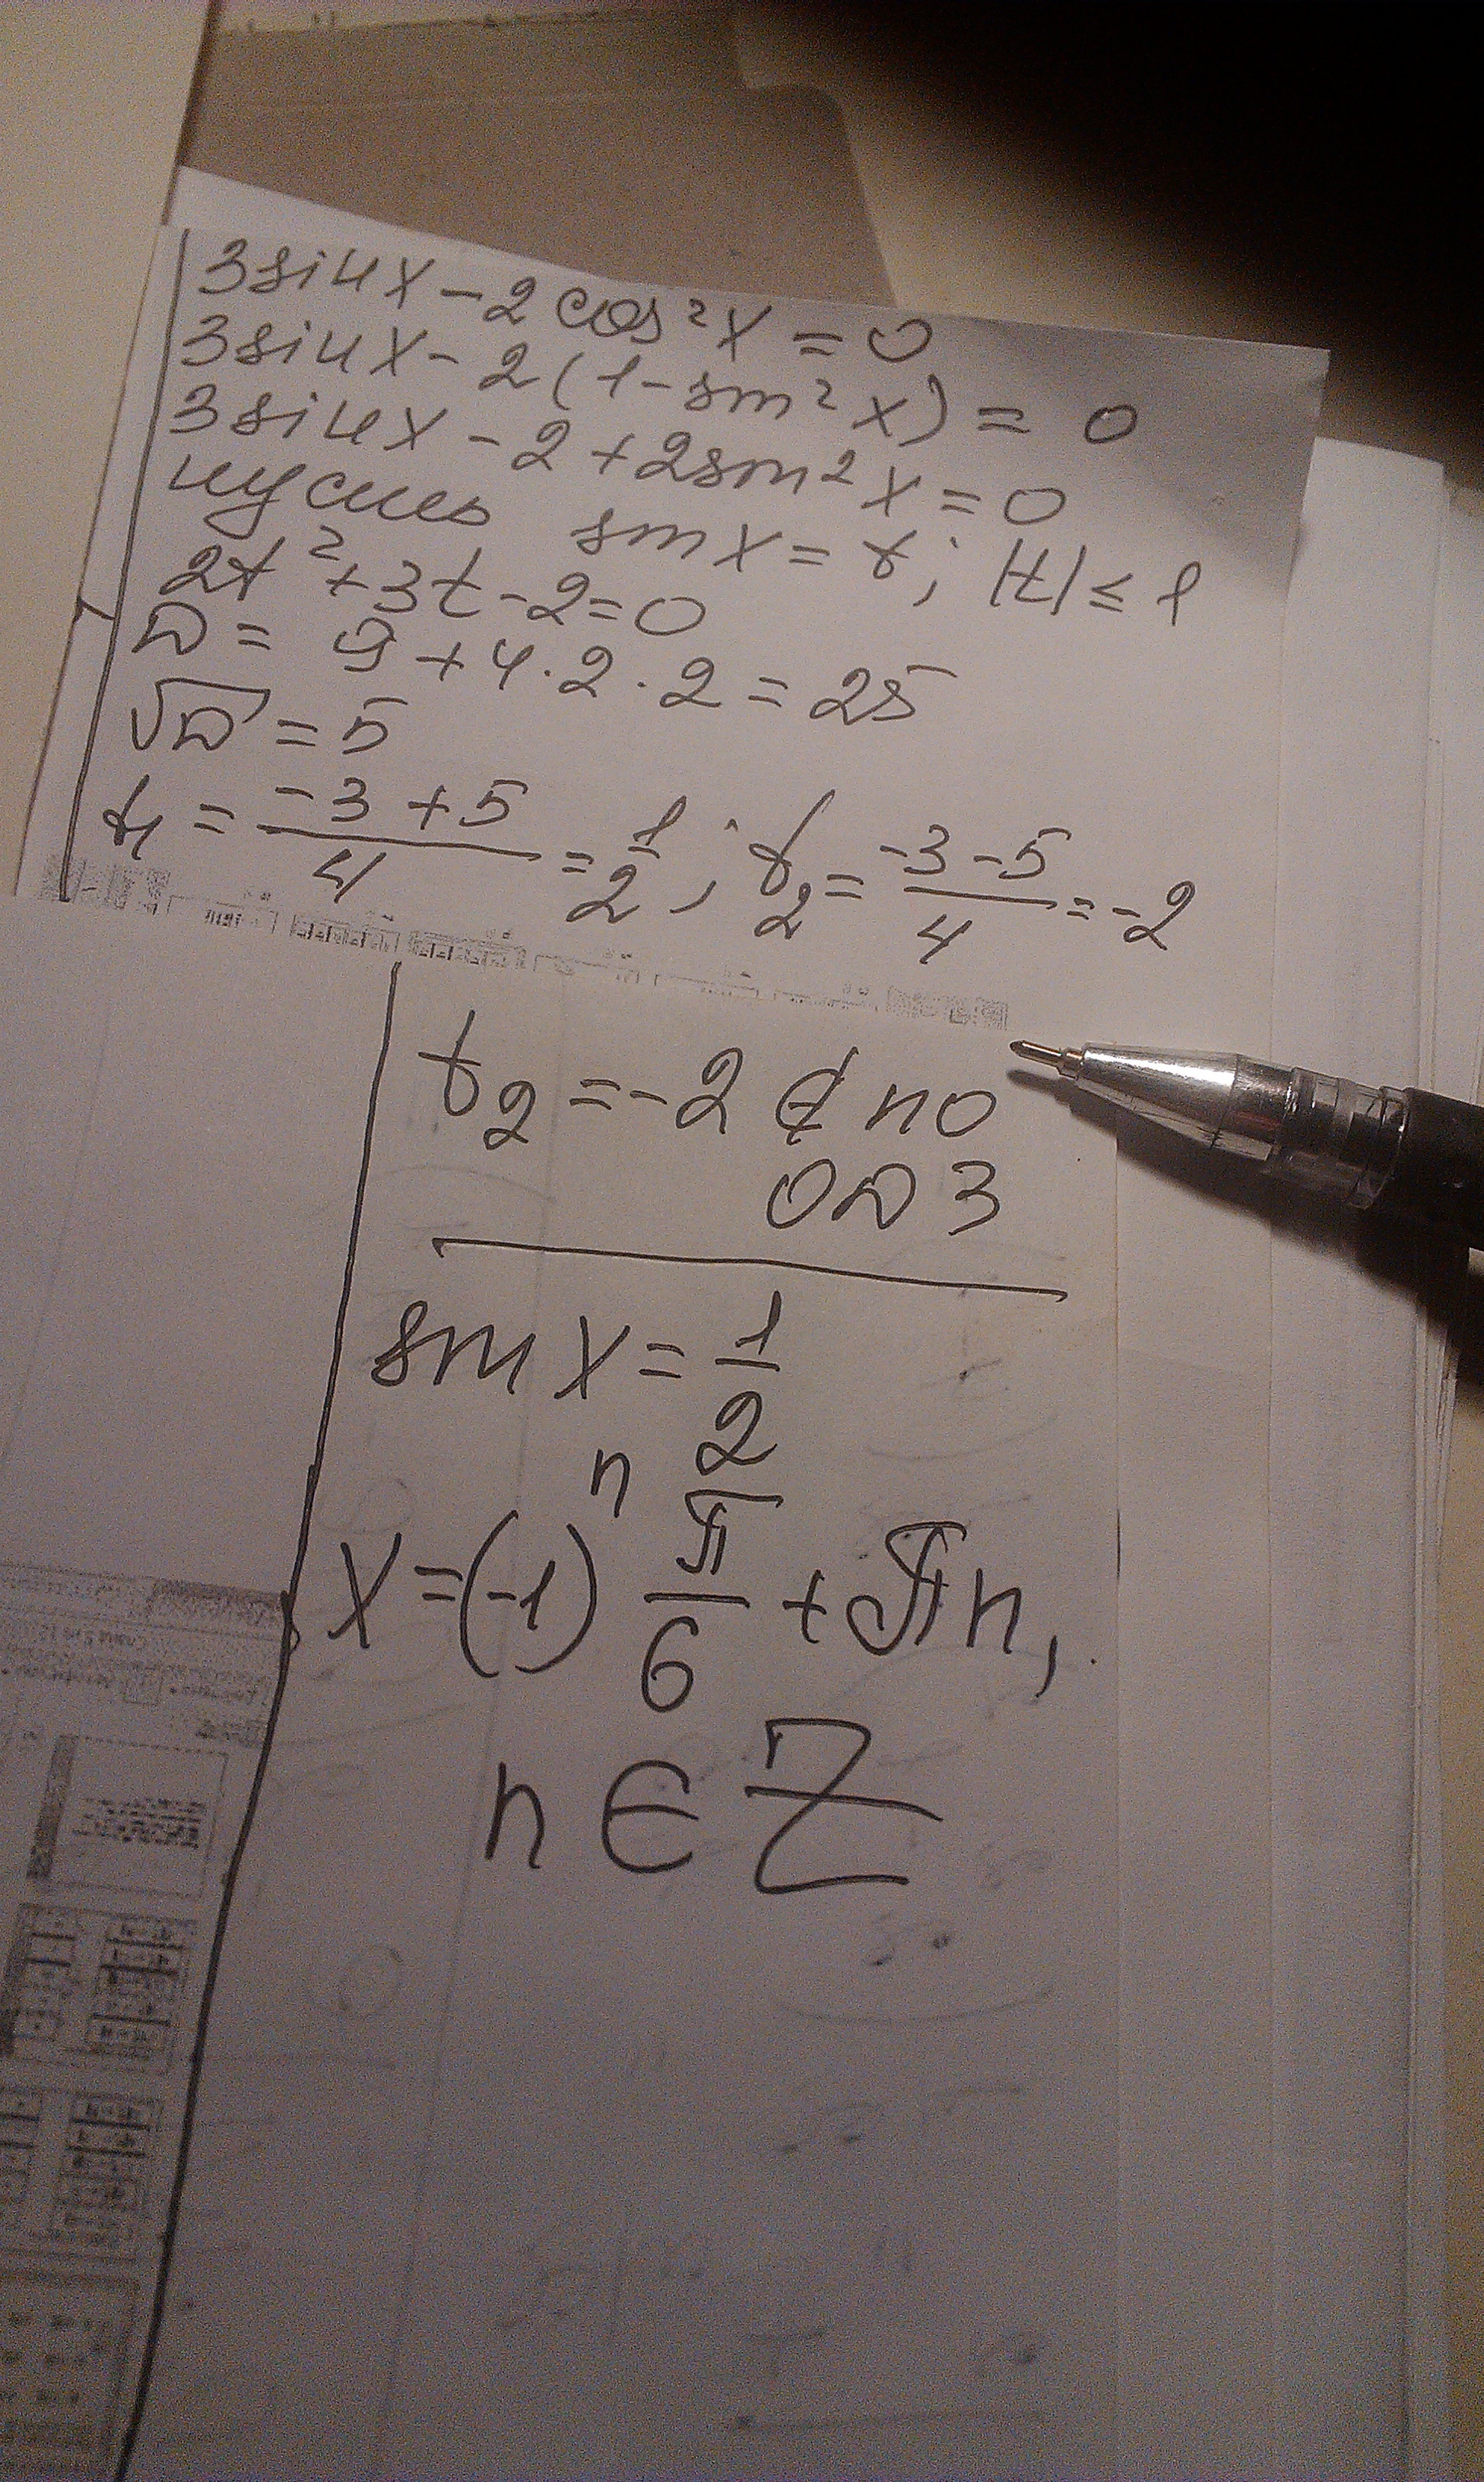 3sinx - 2cos²x = 0
3sinx - 2(1 - sin²x) = 0
3sinx - 2 + 2sin²x = 0
пусть sinx = t; |t| ≤ 1
2t² + 3t - 2 = 0
D = 9 + 4·2·2 = 25
√D = 5
t₁ = (-3 + 5)/4 = 1/2; t₂ = (-3 - 5)/4 = -2
t₂ = -2 ∉ по
ОДЗ
sin x = 1/2
x = (-1)ⁿ π/6 + πn,
n ∈ Z